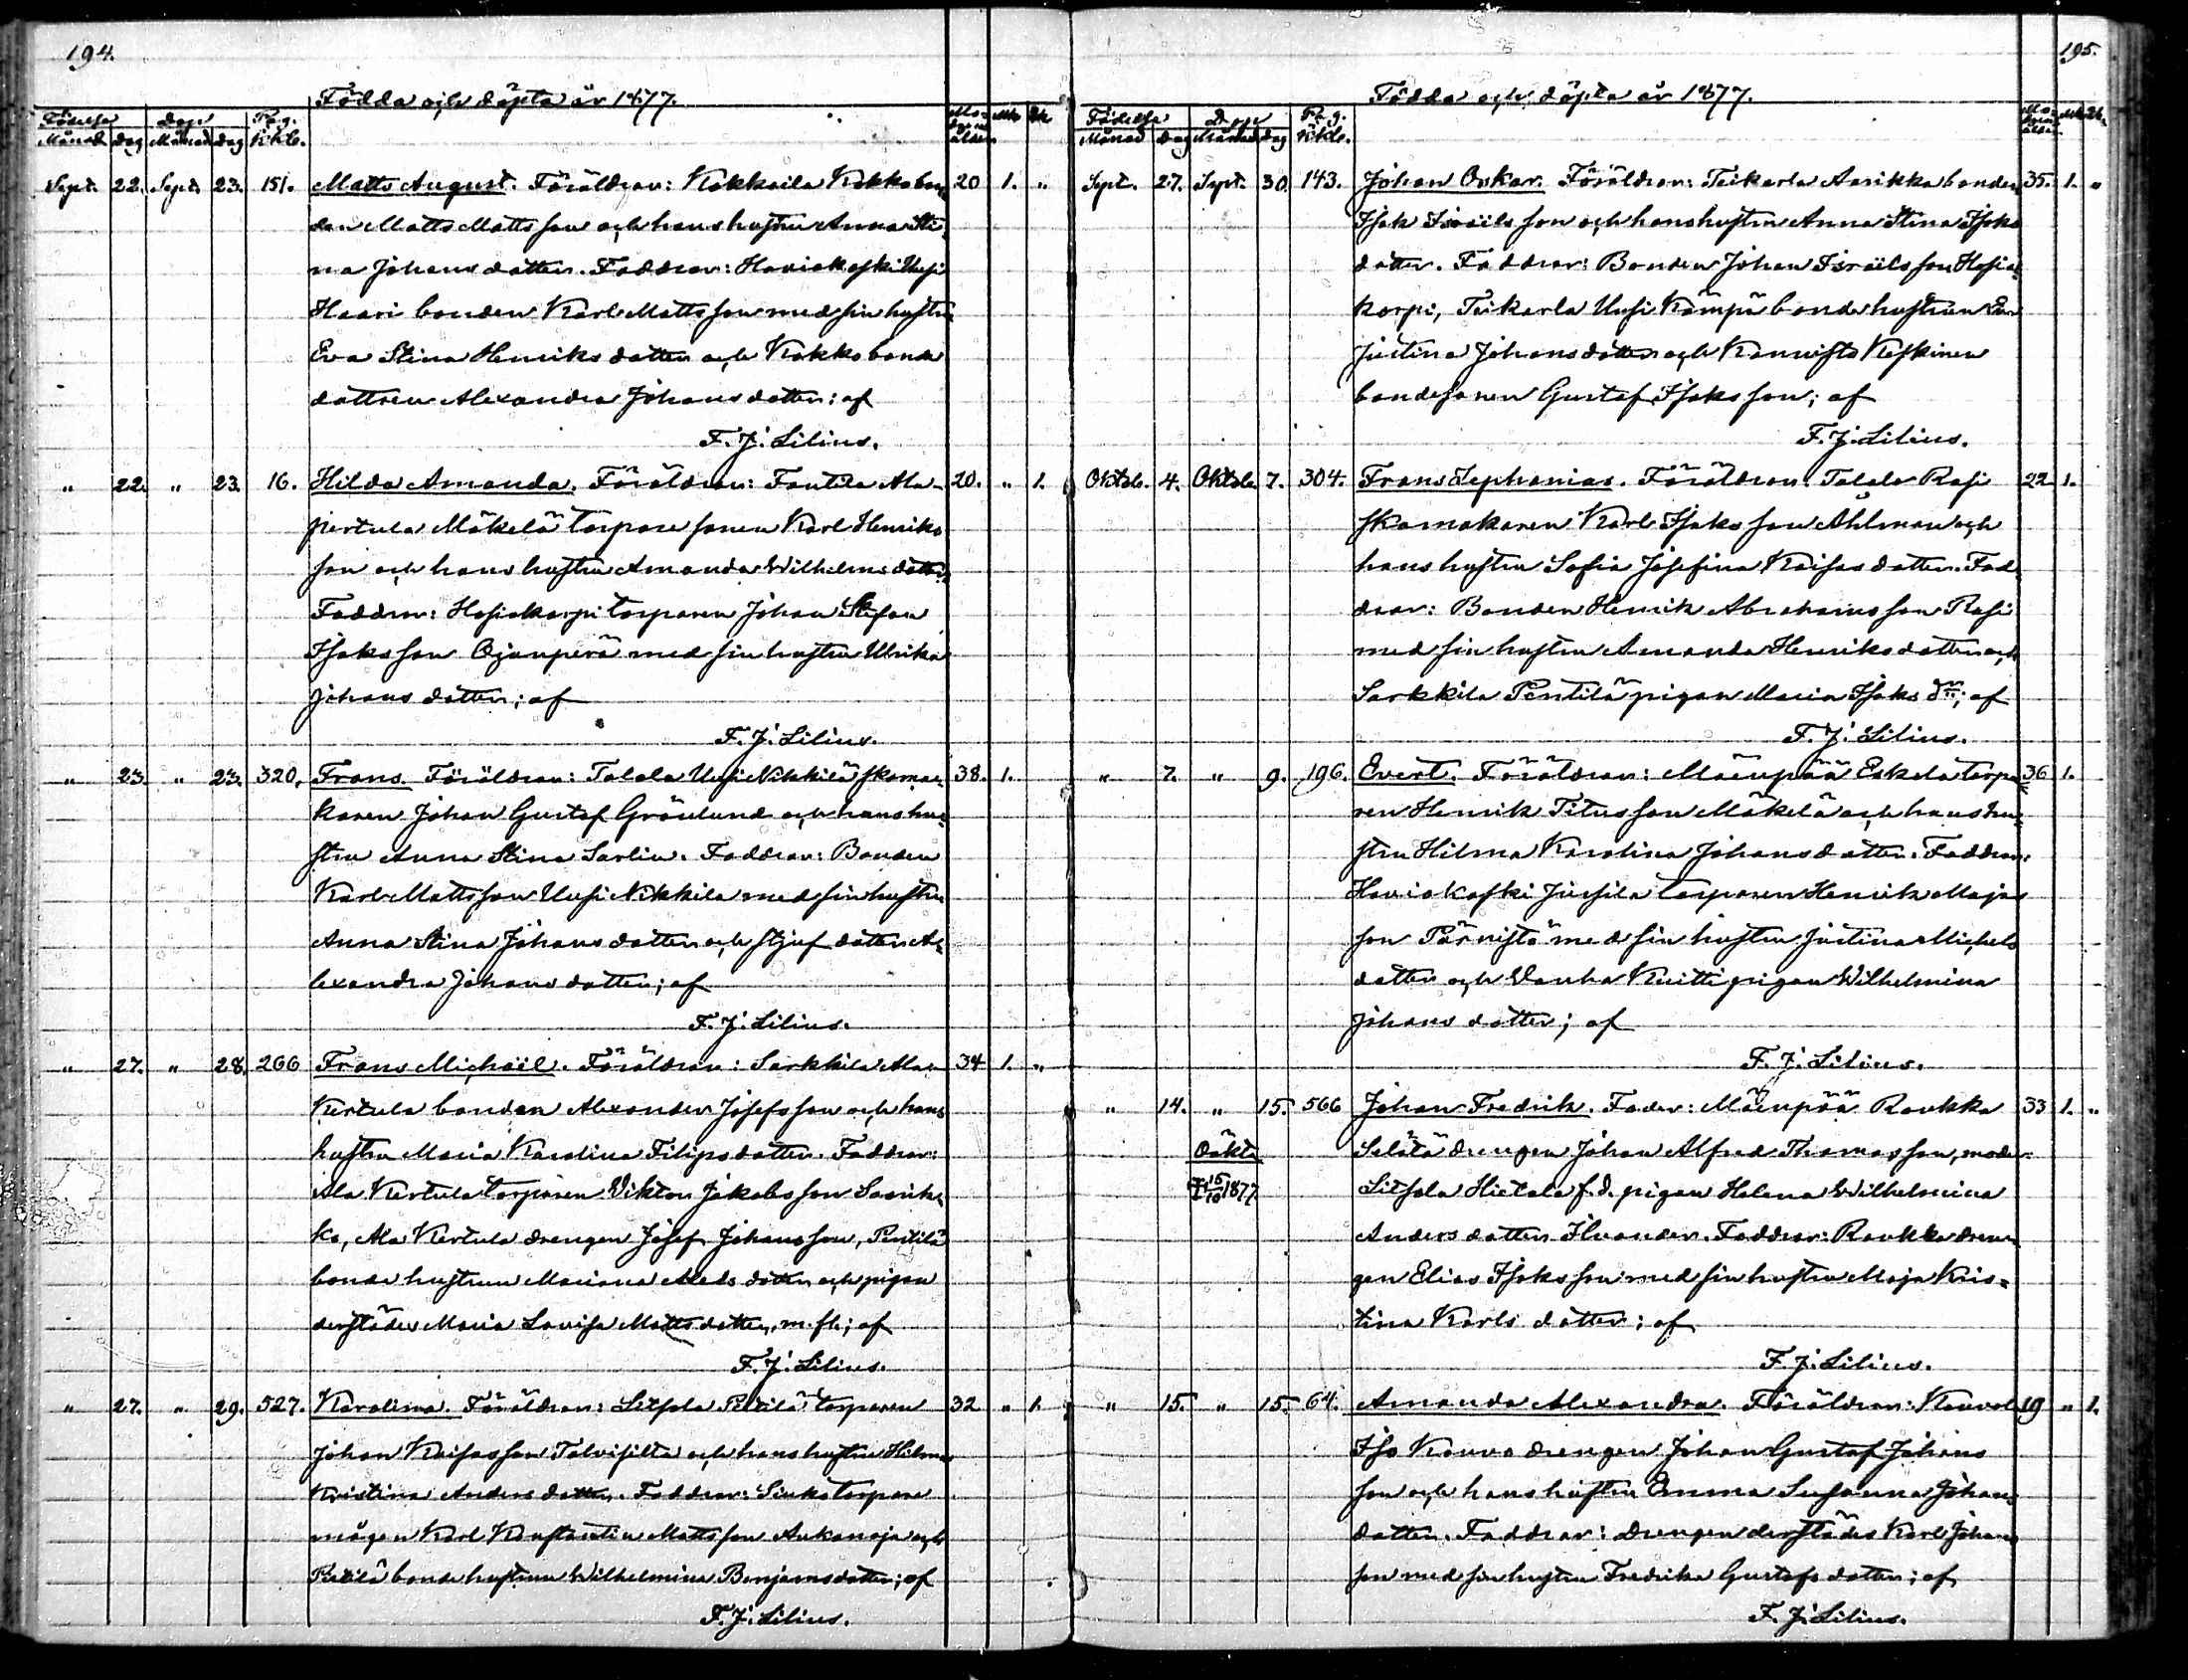 194.
Födda och döpta år 1877.
Födelse Dop Pag. Mo-
Månad dag Månad dag K.kb. derns ålder Mk Qk
Sept. 22. Sept. 23. 151. Matts August. Föräldrar: Kokkoila Kokko bon 20 1. "
den Matts Mattsson och hans hustru Anna Sti
na Johansdotter. Faddrar: Haviokoski Uusi
Haari bonden Karl Mattsson med sin hustru
Eva Stina Henriksdotter och Kokko bonde
dottren Alexandra Johansdotter; af
F. J. Lilius.
" 22. " 23. 16. Hilda Amanda. Föräldrar: Fantila Ala- 20. " 1.
pertula Mäkelä torparesonen Karl Henriks
son och hans hustru Amanda Wilhelmsdotter
Faddrar: Hosiokorpi torparen Johan Stefan
Isaksson Ojanperä med sin hustru Ulrika
Johansdotter; af
F. J. Lilius.
" 23. " 23. 320. Frans. Föräldrar: Talala Uusi Nikkilä skoma- 38. 1.
karen Johan Gustaf Grönlund och hans hu
stru Anna Stina Sarlin. Faddrar: Bonden
Karl Mattsson Uusi Nikkila med sin hustru
Anna Stina Johansdotter och stjufdotter A-
lexandra Johansdotter; af
F. J. Lilius.
" 27. " 28. 266 Frans Michaël. Föräldrar: Sarkkila Ala- 34 1. "
Kertula bonden Alexander Josefsson och hans
hustru Maria Karolina Filipsdotter. Faddrar:
Ala Kertula torparen Viktor Jakobsson Saarik
ko, Ala Kertula drengen Josef Johansson, Penttilä
bonde hustrun Mariana Mattsdotter och pigan
derstädes Maria Lovisa Mattsdotter, m. fl.; af
F. J. Lilius.
" 27. " 29. 527. Karolina. Föräldrar: Litsola Pietilä torparen 32 " 1.
Johan Kaisasson Talvisilta och hans hustru Hilma
Kristina Andersdotter. Faddrar: torpare
mågen Karl Konstantin Mattsson Ankanoja och
Pietilä bonde hustrun Wilhelmina Benjamsdotter; af
F. J. Lilius.
195.
Födda och döpta år 1877.
Födelse Dop Pag. Mo-
Månad dag Månad dag K.kb. derns ålder Mk Qk
Sept. 27. Sept. 30. 143. Johan Oskar. Föräldrar: Teikarla Aarikka bonden 35. 1. "
Isak Israëlsson och hans hustru Anna Stina Isaks
dotter. Faddrar: Bonden Johan Israëlsson Hosio
korpi, Teikarla Uusi Kämpä bondehustrun Eva
Justina Johansdotter och Kannisto Keskinen
bondesonen Gustaf Isaksson; af
F. J. Lilius.
Oktob. 4. Oktob. 7. 304. Frans Zephanias. Föräldrar: Talala Rasi 22. 1.
skomakaren Karl Isaksson Ahlman och
hans hustru Sofia Josefina Kaisasdotter. Fad
drar: Bonden Henrik Abrahamsson Rasi
med sin hustru Amanda Henriksdotter och
Sarkkila Pentilä pigan Maria Isaks dr; af
F. J. Lilius.
" 7. " 9. 196. Evert. Föräldrar: Mäenpää Eskola torpa 36 1.
ren Henrik Titusson Mäkelä och hans hu-
stru Hilma Karolina Johansdotter. Faddrar:
Haviokoski Jussila torparen Henrik Majas
son Pärnistö med sin hustru Justina Michels
dotter och Vanha Knitti pigan Wilhelmina
Johansdotter; af
F. J. Lilius.
" 14. " 15. 566 Johan Fredrik. Fader: Mäenpää Raukka 33 1. "
Oäkta Selätä drengen Johan Alfred Thomasson, moder:
15/10 1877 Litsola Hietala f. d. pigan Helena Wilhelmina
Andersdotter Ilvander. Faddrar: Raukka dren
gen Elias Isaksson med sin hustru Maja Kris-
tina Karlsdotter; af
F. J. Lilius.
" 15. " 15. 64. Amanda Alexandra. Föräldrar: Kouvola 19 " 1.
Iso Kouvo drengen Johan Gustaf Johans
son och hans hustru Emma Susanna Johans
dotter. Faddrar: drengen derstädes Karl Johans
son med sin hustru Fredrika Gustafsdotter; af
F. J. Lilius.